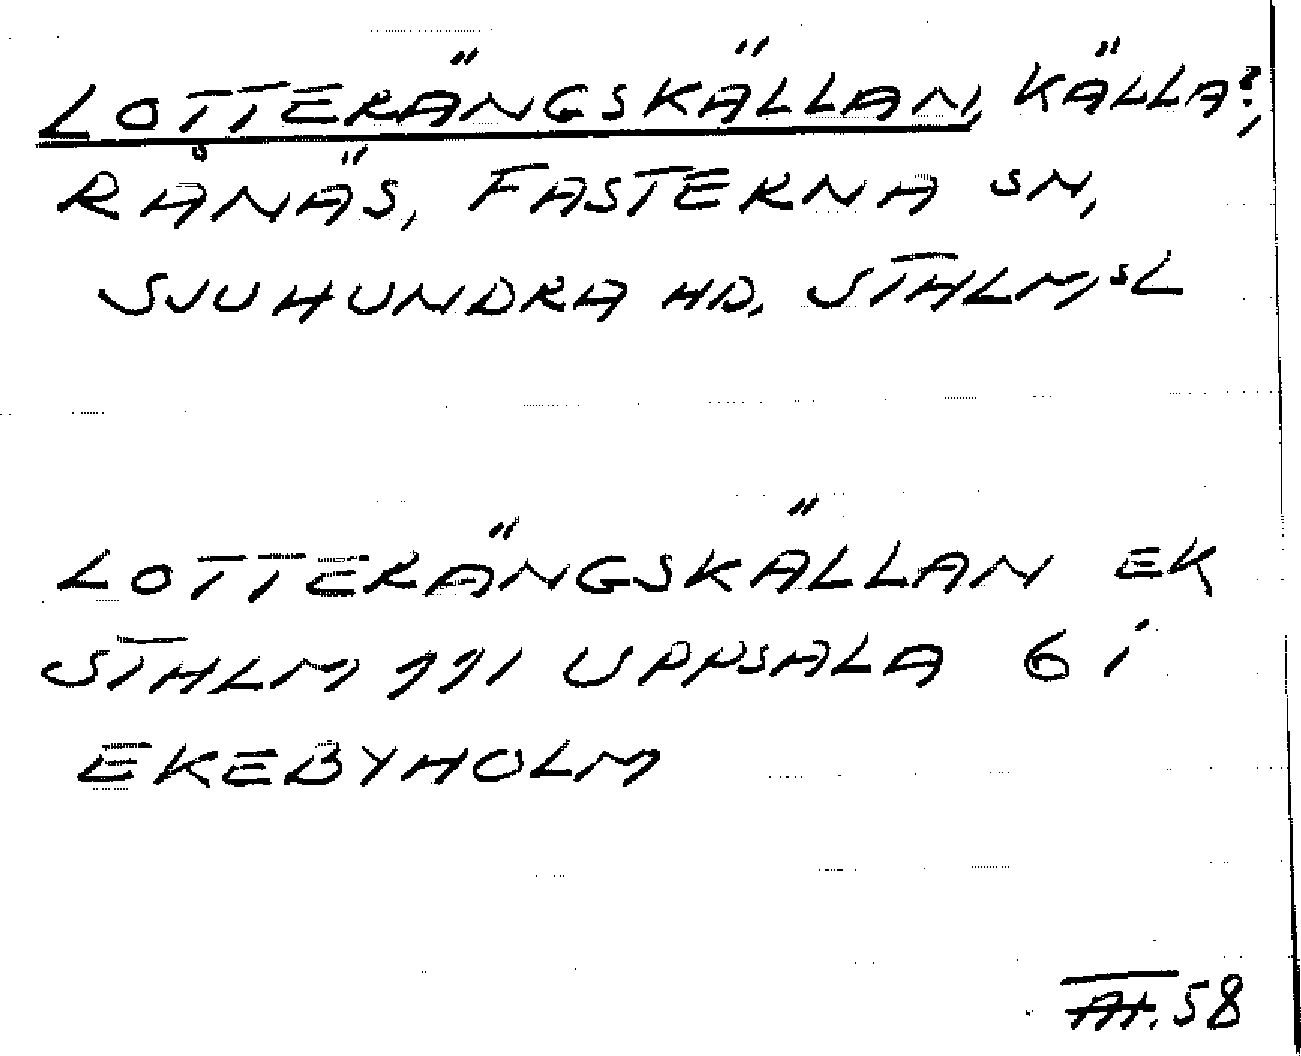 LOTTERÄNGSKÄLLAN, KÄLLA?,
RÅNÄS, FASTERNA SN,
SJUHUNDRA HD, STHLMSL
LOTTERÄNGSKÄLLAN EK
STHLM 111 UPPSALA 6 i
EKEBYHOLM
58